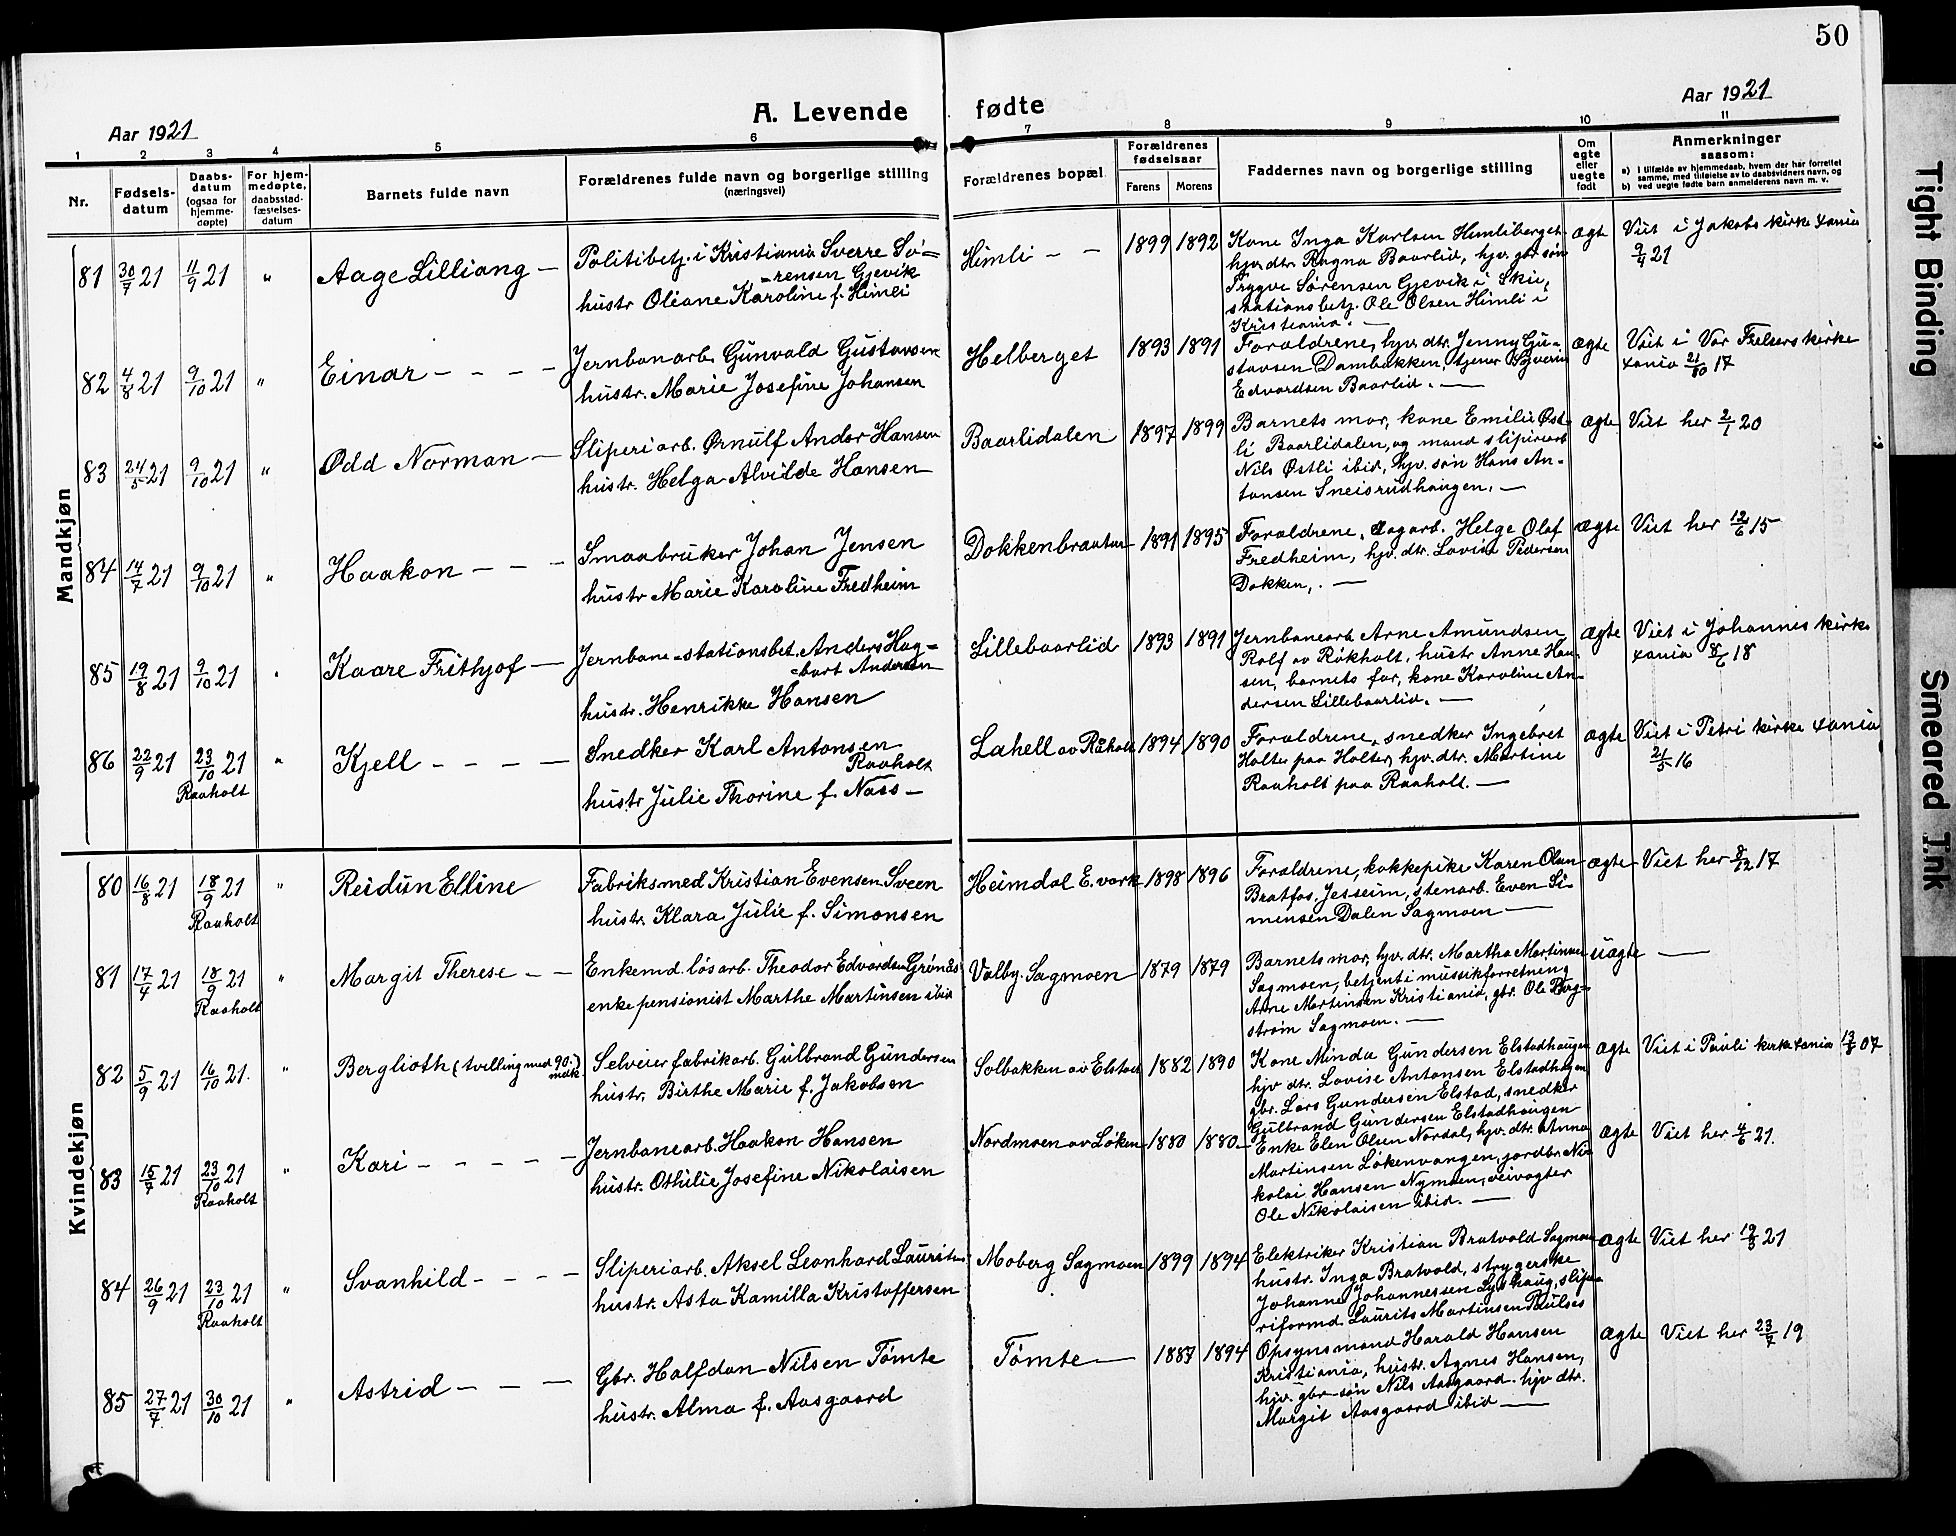 50
Aar 1921
A. Levende fødte
Aar 1921
1 2 3 4 5 6 7 8 9 10 11
Nr.
Fødsels-
datum
Daabs-
datum
(ogsaa for
hjemme-
døpte)
For hjem-
medøpte,
daabsstad-
fæstelses-
datum
Barnets fulde navn
Forældrenes fulde navn og borgerlige stilling
(næringsvei)
Forældrenes bopæl
Forældrenes
fødselsaar
Farens Morens
Faddernes navn og borgerlige stilling
Om
egte
eller
uegte
født
Anmerkninger
saasom:
a) I tilfælde av hjemmedaab, hvem der har forrettet
samme, med tilføielse av to daabsvidners navn, og
b) ved uegte fødte barn anmelderens navn m. v.
Mandkjøn
81 30/7 21 11/9 21 " Aage Lilliang —
Politibetj. i Kristiania Sverre Sø=
=rensen Gjevik
hustr Oliane Karoline f. Himli
Himli – – 1899 1892
Kone Inga Karlsen Himliberget
hjv. dtr. Ragna Baarlid, hjv. gbr søn
Trygve Sørensen Gjevik i Ski,
stationsbetj. Ole Olsen Himli i
Kristiania. —
ægte Viet i Jakobs kirke Xania
9/4 21
82 4/8 21 9/10 21 " Einar – – – –
Jernbanarb. Gunvald Gustavsen
hustr. Marie Josefine Johansen
Helberget 1893 1891
Forældrene, hjv. dtr. Jenny Gu-
stavsen Dambakken, tjener Syverin
Edvardsen Baarlid. —
ægte Viet i Vor Frelsers kirke
Xania 21/10 17
83 24/5 21 9/10 21 " Odd Norman —
Sliperiarb. Ørnulf Andor Hansen
hustr. Helga Alvilde Hansen
Baarlidalen 1897 1899
Barnets mor, kone Emilie Øst-
li Baarlidalen, og mand sliperiarb
Nils Østli ibid, hjv. søn Hans An-
tonsen Sneisrudhaugen. —
ægte Viet her 2/1 20
84 14/7 21 9/10 21 " Haakon – – –
Smaabruker Johan Jensen
hustr Marie Karoline Fredheim
Dokkenbraaten 1891 1895
Forældrene, dagarb. Helge Olaf
Fredheim, hjv. dtr. Lovise Pedersen
Dokken, . —
ægte Viet her 12/6 15
85 19/8 21 9/10 21 " Kaare Frithjof —
Jernbane-stationsbet. Anders Hag=
=bart Andersen
hustr. Henrikke Hansen
Lillebaarlid 1893 1891
Jernbanearb. Arne Amundsen
Rolf av Røkholt, hustr Anne Han-
sen, barnets far, kone Karoline An-
dersen Lillebaarlid. —
ægte Viet i Johannis kirke
Xania 8/6 18
86 22/9 21 23/10 21 " Kjell – – – –
Raaholt
Snedker Karl Antonsen
Raaholt
hustr Julie Thorine f. Næss –
Lahell av Raaholt 1894 1890
Forældrene, snedker Ingebret
Holter paa Holter, hjv. dtr. Martine
Raaholt paa Raaholt. —
ægte Viet i Petri kirke Xania
21/5 16
Kvindekjøn
80 16/8 21 18/9 21 " Reidun Elline
Raaholt
Fabriksmed Kristian Evensen Sveen
hustr. Klara Julie f. Simonsen
Heimdal E. verk 1898 1896
Forældrene, kokkepike Karen Olsen
Bratfos, Jesseim, stenarb. Even Si-
mensen Dalen Sagmoen —
ægte Viet her 8/12 17
81 17/4 21 18/9 21 " Margit Therese – –
Raaholt
Enkemd. løsarb. Theodor Edvardsen Grønaas
enkepensionist Marthe Martinsen ibid
Valby Sagmoen 1879 1879
Barnets mor, hjv. dtr. Martha Martinsen
Sagmoen, betjent i musikforretning
Arne Martinsen Kristiania, gbr. Ole Berg-
strøm Sagmoen. —
uægte —
82 5/9 21 16/10 21. " Berglioth (tvilling med 90
mdk.)
Selveier fabrikarb. Gulbrand Gundersen
hustr. Birthe Marie f. Jakobsen
Solbakken av Elstad 1882 1890
Kone Minda Gundersen Elstadhaugen
hjv dtr. Lovise Antonsen Elstadhaugen
gbr. Lars Gundersen Elstad, snedker
Gulbrand Gundersen Elstadhaugen
ægte Viet i Pauli kirke Xania 13/8 07
83 15/7 21 23/10 21 " Kari – – – – –
Raaholt
Jernbanearb. Haakon Hansen
hustr. Othilie Josefine Nikolaisen
Nordmoen av Løken 1880 1880
Enke Elen Olsen Nordal, hjv. dtr. Anna
Martinsen Løkenvangen, jordbr. Ni-
kolai Hansen Nymoen, veivogter
Ole Nikolaisen ibid. —
ægte Viet her 4/6 21.
84 26/9 21 23/10 21 " Svanhild – – – –
Raaholt
Sliperiarb. Aksel Leonhard Lauritsen
hustr. Asta Kamilla Kristoffersen
Moberg Sagmoen 1899 1894
Elektriker Kristian Bratvold Sagmoen
hustr. Inga Bratvold, strygerske
Johanne Johannessen Lyshaug, slipe-
riformd Laurits Martinsen
ægte Viet her 19/3 21
85 27/7 21 30/10 21 " Astrid – – –
Gbr. Halfdan Nilsen Tømte
hustr. Alma f. Aasgaard
Tømte — 1887 1894
Opsynsmand Harald Hansen
Kristiania, hustr. Agnes Hansen,
hjv. gbr-søn Nils Aasgaard. hjv dtr.
Margit Aasgaard ibid —
ægte Viet her 23/7 19
Tight Binding
Smeared Ink